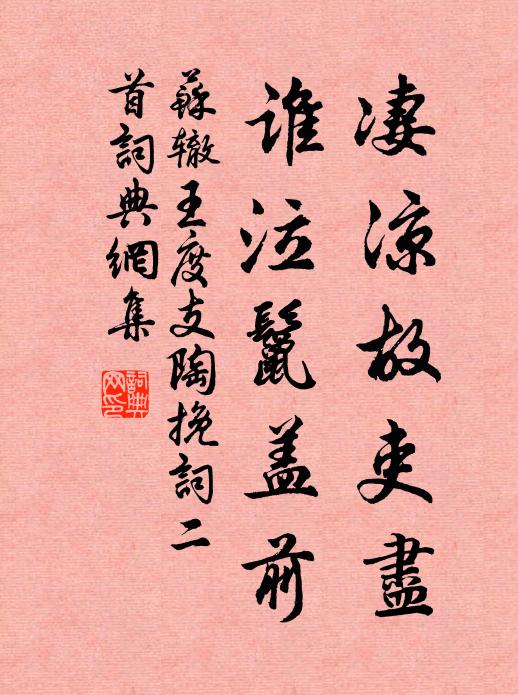 凄涼故吏盡
誰泣鬣盖前
蘇辙王度支陶挽詞二
首詞典網集
詞典网印